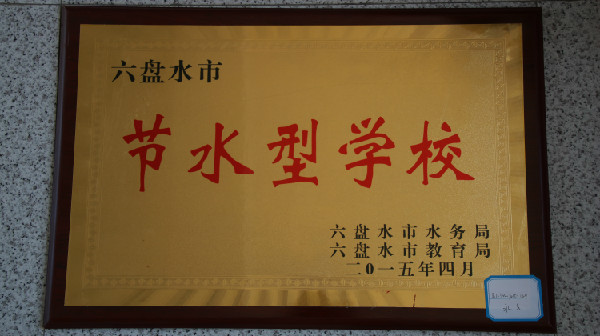 六盘水市
节水型学校
六盘水市水务局
六盘水市教育局
二0一五年四月